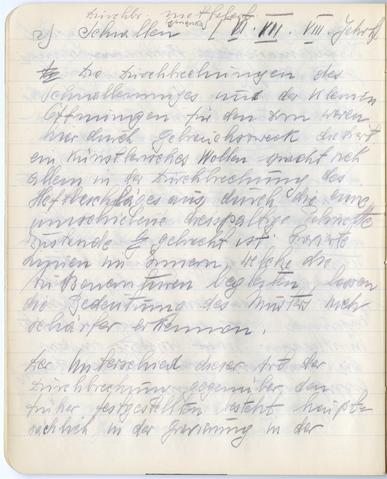 2) Schnallen VI. VII. VIII. Jahrh.
Die Durchbrechungen des
Schnallenringes und der kleinen
Öffnungen für den Dorn waren
nur durch Gebrauchszweck diktiert
ein künstlerisches Wollen macht sich
allein in der Durchbrechung des
durch die eine
umschriebene dreispaltige
gebracht ist.
Linien im Innern, welche die
Außenkonturen begleiten, lassen
die Bedeutung des Musters noch
schärfer erkennen.
Der Unterschied dieser Art der
Durchbrechung gegenüber den
früher festgestellten besteht haupt-
sächlich in der Gravierung in der